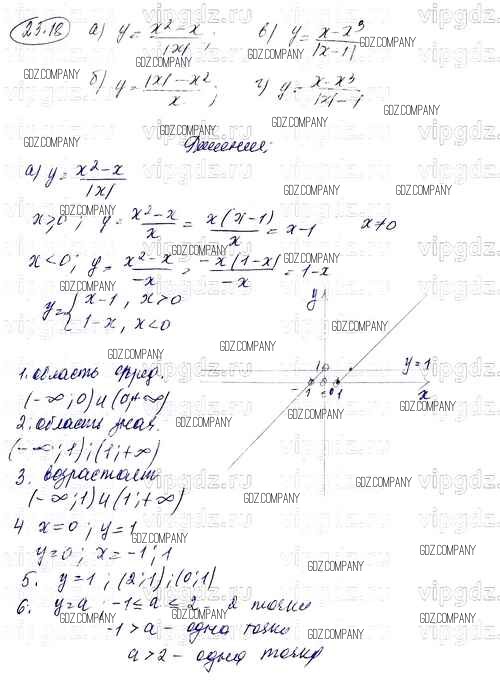 23.18 а) y = x²-x / |x| ; в) y = x-x³ / |x-1|
б) y = |x|-x² / x ; г) y = x-x³ / |x|-1
Решение:
а) y = x²-x / |x|
x>0; y = x²-x / x = x(x-1) / x = x-1 x≠0
x<0; y = x²-x / -x = -x(1-x) / -x = 1-x
y = { x-1, x>0
1-x, x<0
y
1
y=1
-1 0 1
x
1. область опред.
(-∞; 0) U (0; +∞)
2. области знач.
(-∞; 1); (1; +∞)
3. возрастает
(-∞; 1) U (1; +∞)
4 x=0; y=1
y=0; x=-1; 1
5. y=1; (2; 1); (0; 1)
6. y=a; -1≤a≤2 - 2 точки
-1>a - одна точка
a>2 - одна точка
GDZ.COMPANY
vipgdz.ru